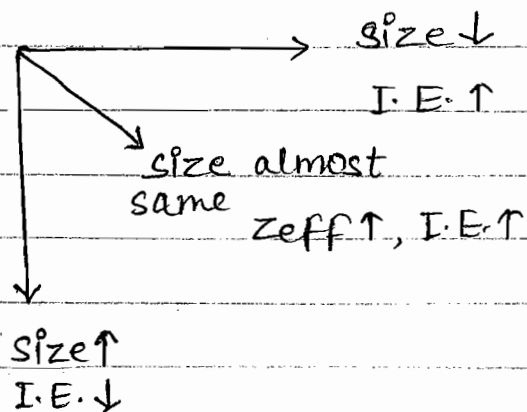 size ↓
I.E. ↑
size almost
same
zeff ↑, I.E. ↑
size ↑
I.E. ↓